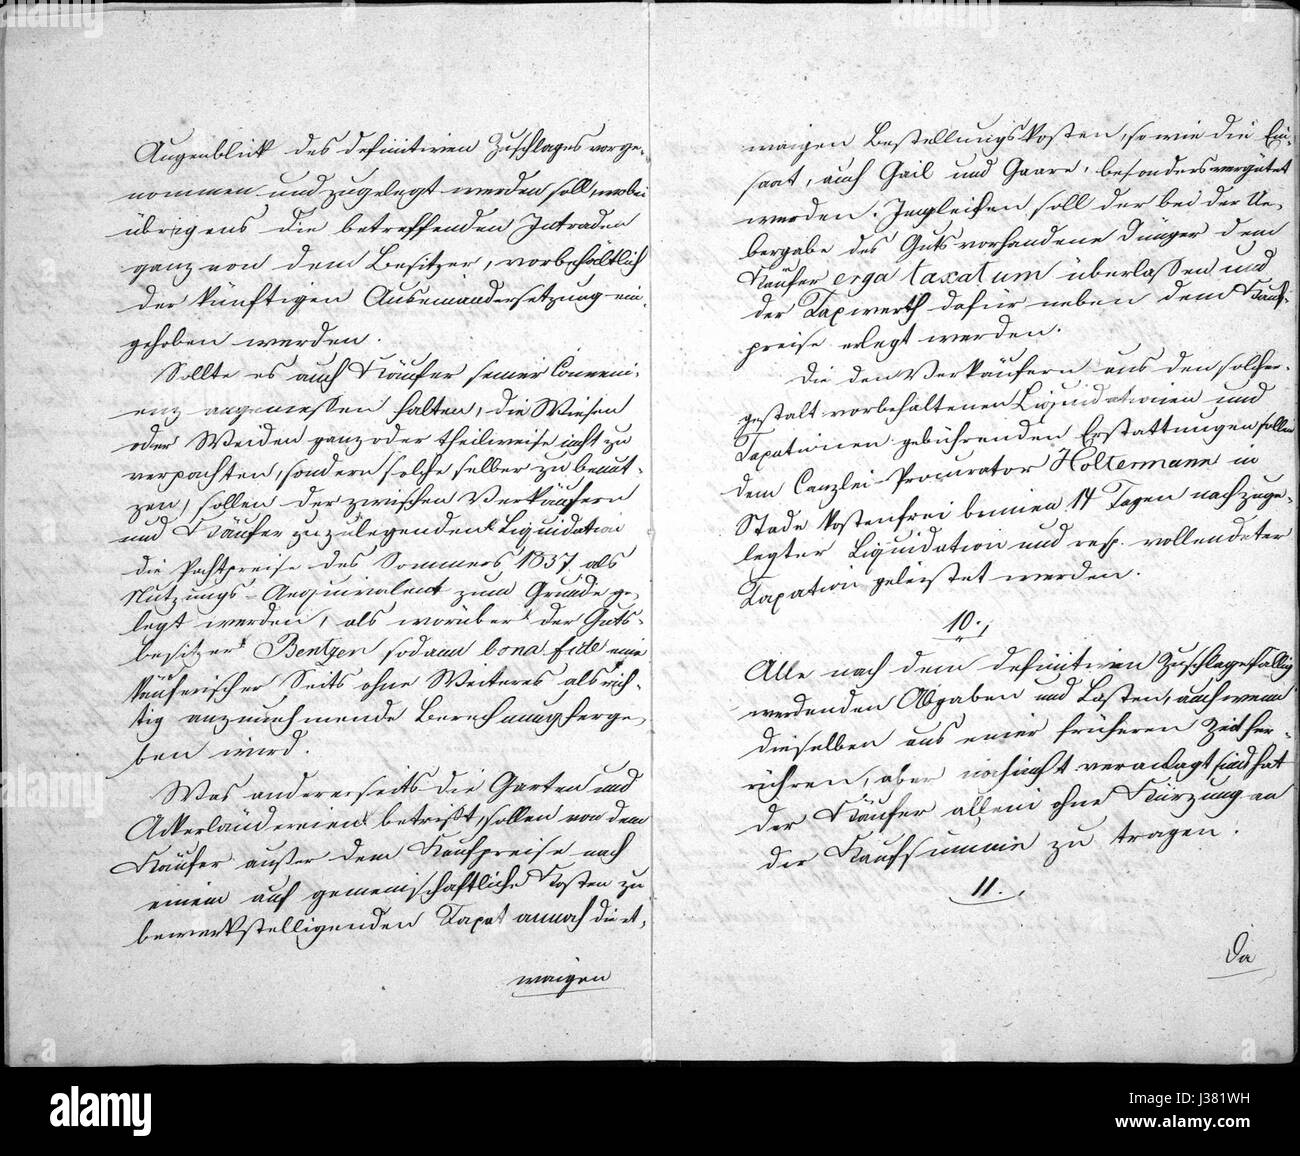 Augenblick des definitiven Zuschlages vorge-
nommen und zugelegt werden soll, wobei
übrigens die betreffenden Intraden
ganz von dem Besitzer, vorbehältlich
der künftigen Auseinandersetzung ein-
gehoben werden.
Sollte es auch Käufer seiner Conveni-
enz angemessen halten, die Wiesen
oder Weiden ganz oder theilweise nicht zu
verpachten, sondern solche selber zu benut-
zen, sollen der zwischen Verkäufern
und Käufer zuzulegenden Liquidation
die Pachtpreise des Sommers 1837 als
Nutzungs-Aequivalent zum Grunde ge-
legt werden, als worüber der Guts-
besitzer Bentzen sodann bona fide eine
käuferischer Seits ohne Weiteres als rich-
tig anzunehmende Berechnung herge-
ben wird.
Was andererseits die Garten und
Ackerländereien betrifft, sollen von dem
Käufer außer dem Kaufpreise nach
einem auf gemeinschaftliche Kosten zu
bewerkstelligenden Taxat annoch die et-
waigen
waigen Bestellungskosten, sowie die Ein-
saat, auch Gail und Gaare, besonders vergütet
werden. Imgleichen soll der bei der Ue-
bergabe des Guts vorhandene Dünger dem
Käufer erga taxatum überlassen und
der Taxwerth dafür neben dem Kauf-
preise erlegt werden.
Die den Verkäufern aus den solcher-
gestalt vorbehaltenen Liquidationen und
Taxationen gebührenden Erstattungen sollen
dem Canzlei-Procurator Holtermann in
Stade kostenfrei binnen 14 Tagen nach zuge-
legter Liquidation und resp. vollendeter
Taxation geleistet werden.
10.
Alle nach dem definitiven Zuschlage fällig
werdenden Abgaben und Lasten, auch wenn
dieselben aus einer früheren Zeit her-
rühren, aber noch nicht veranlagt sind hat
der Käufer allein ohne Kürzung an
der Kaufsumme zu tragen.
11.
Da
alamy
alamy
alamy
J381WH
www.alamy.com